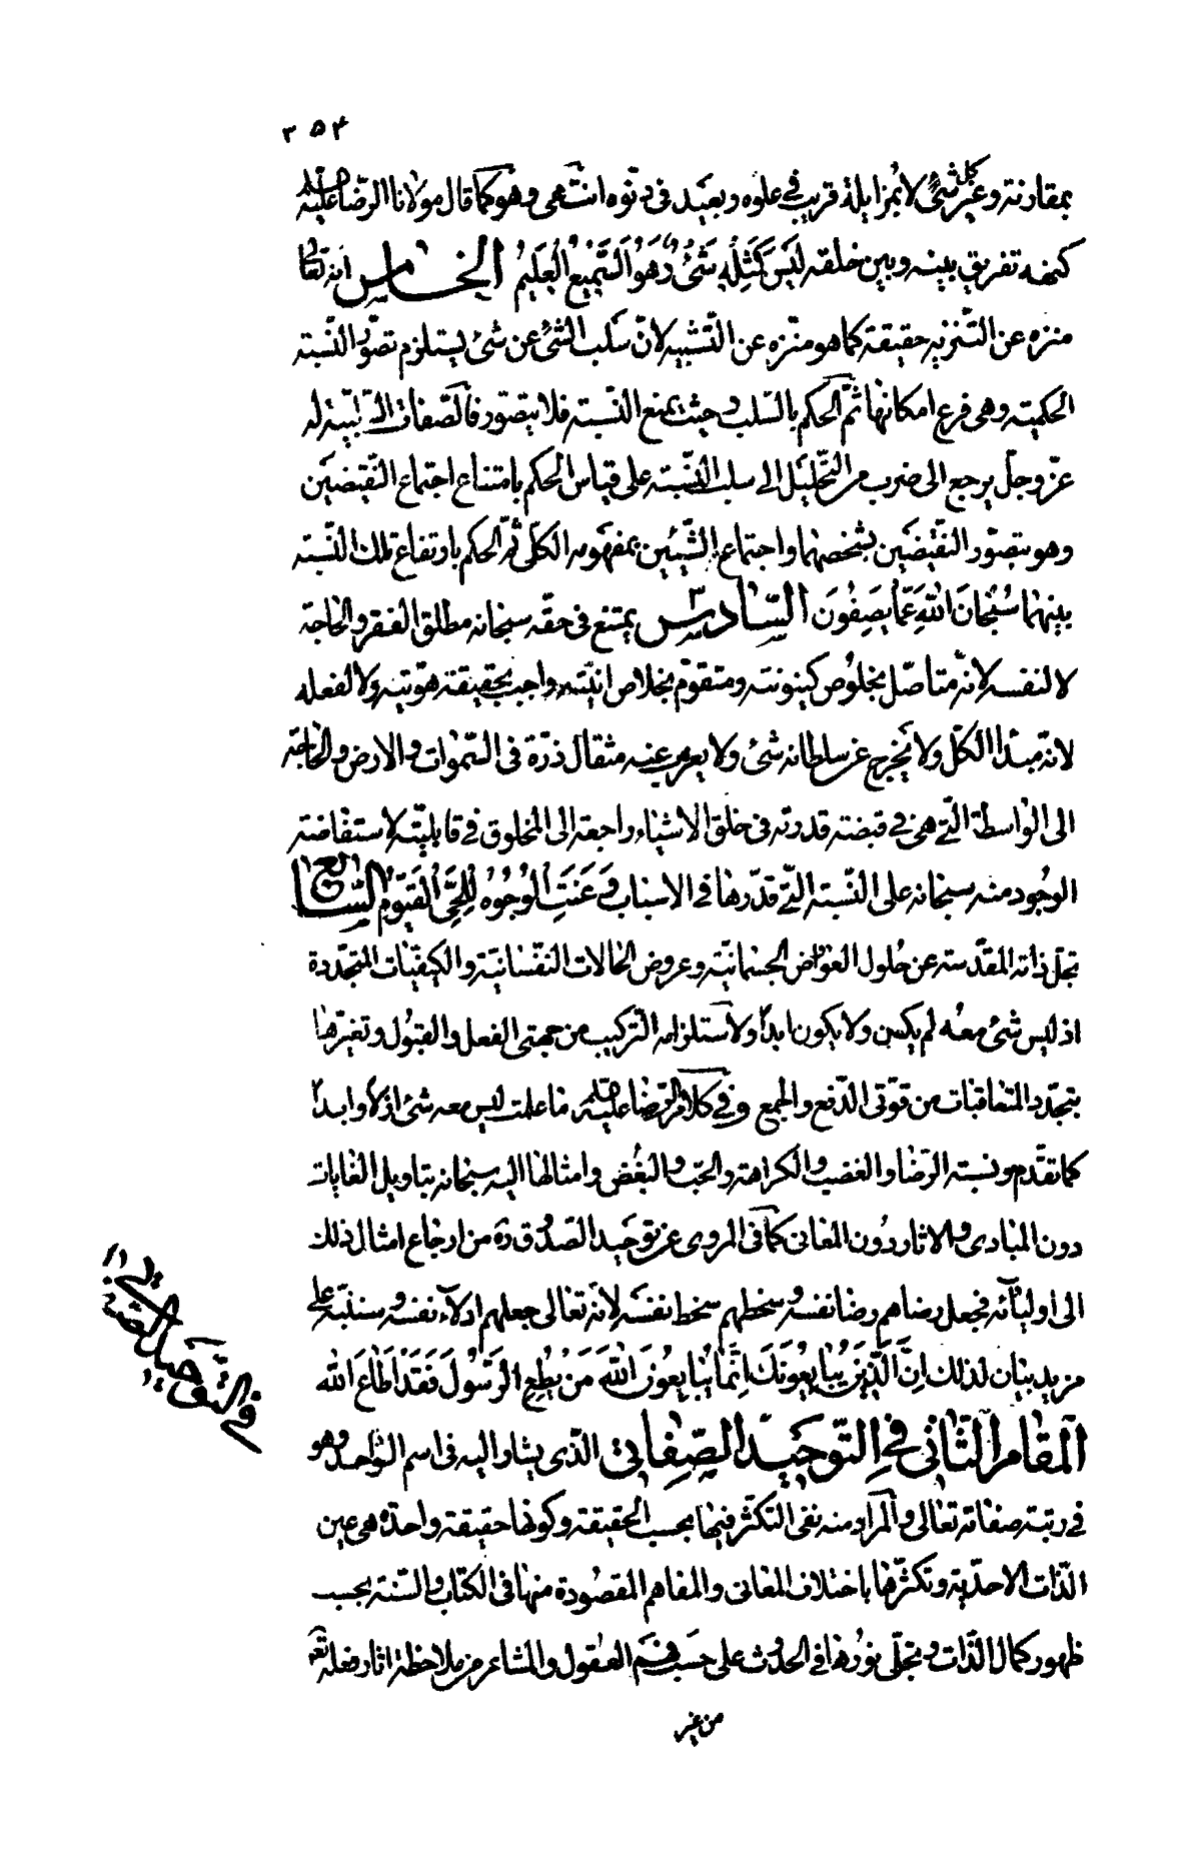 ٣٥٤
بمقارنة وغير كل شئ لا بمزايلة قريب في علوه وبعيد في دنوه انتهى وهو كما قال مولانا الرّضا عليه
كنهه تفريق بينه وبين خلقه لَيْسَ كَمِثْلِهِ شَئٌ وَهُوَ السَّمِيعُ الْعَلِيمُ الخامس انه تعالى
منزه عن التّنزيه حقيقة كما هو منزه عن التّشبيه لانّ سلب الشئ عن شئ يستلزم تصوّر النّسبته
الحكمية وهى فرع امكانها ثمّ الحكم بالسّلب وحيث يمنع النّسبته فلا يتصوّر فالصّفات السّلبيّة له
عزّ وجلّ يرجع الى ضرب من التّحليل الى سلب النّسبته على قياس الحكم بامتناع اجتماع النّقيضين
وهو بتصوّر النّقيضين بشخصهما واجتماع الشّيئين بمفهومه الكلّى ثم الحكم بارتفاع تلك النّسبته
بينهما سُبْحَانَ اللهِ عَمَّا يَصِفُونَ السّادس يمتنع في حقّه سبحانه مطلق الفقر والحاجة
لا لنفسه لانّه متاصّل بخلوص كينونته ومتقوّم بخلاص انيّته واجب بحقيقته هويّته ولا لفعله
لانّه مبدا الكلّ ولا يخرج عن سلطانه شئ ولا يعزب عنه مثقال ذرّة في السّموات والارض والحاجة
الى الواسطة الّتي هى في قبضته قدرته في خلق الاشياء راجعة الى المخلوق في قابليّته لاستفاضته
الوجود منه سبحانه على النّسبته الّتي قدّرها في الاسباب وَعَنَتِ الْوُجُوهُ لِلْحَىِّ الْقَيُّومِ السّابع
تجلّ ذاته المقدّسته عن حلول العوارض الجسمانيّة وعروض الحالات النّفسانيّة والكيفيّات المتجدّدة
اذ ليس شئ معه لم يكن ولا يكون ابدا ولاستلزامه التّركيب من جهتى الفعل والقبول وتغيّرها
بتجدّد المتعاقبات من قوّتى الدّفع والجمع وفي كلام الرّضا عليه ما علمت ليس معه شئ ازلا وابدا
كما تقدّم ونسبته الرّضا والغضب والكراهة والحبّ والبغض وامثالها اليه سبحانه بتاويل الغايات
دون المبادى والاثار دون المعانى كما في المروى عن توحيد الصّدوق ره من ارجاع امثال ذلك
الى اوليائه فجعل رضاهم رضا نفسه وسخطهم سخط نفسه لانّه تعالى جعلهم ادلّاء نفسه وسننبّه على
مزيد بيان لذلك اِنَّ الَّذِينَ يُبَايِعُونَكَ اِنَّمَا يُبَايِعُونَ اللهَ مَنْ يُطِعِ الرَّسُولَ فَقَدْ اَطَاعَ الله
المقام الثّانى في التّوحيد الصّفاتى الّذى يشار اليه في اسم الواحد وهو
في رتبته صفاته تعالى والمراد منه نفى التكثّر فيها بحسب الحقيقة وكونها حقيقة واحدة هى عين
الذّات الاحديّة وتكثّرها باختلاف المعانى والمفاهم المقصودة منها في الكتاب والسّنة بحسب
ظهور كمال الذّات وتجلّى نورها في الحدوث على حسب فهم العقول والمشاعر من ملاحظة اثار فعله تعه
من غير
في التوحيد الصفاتي